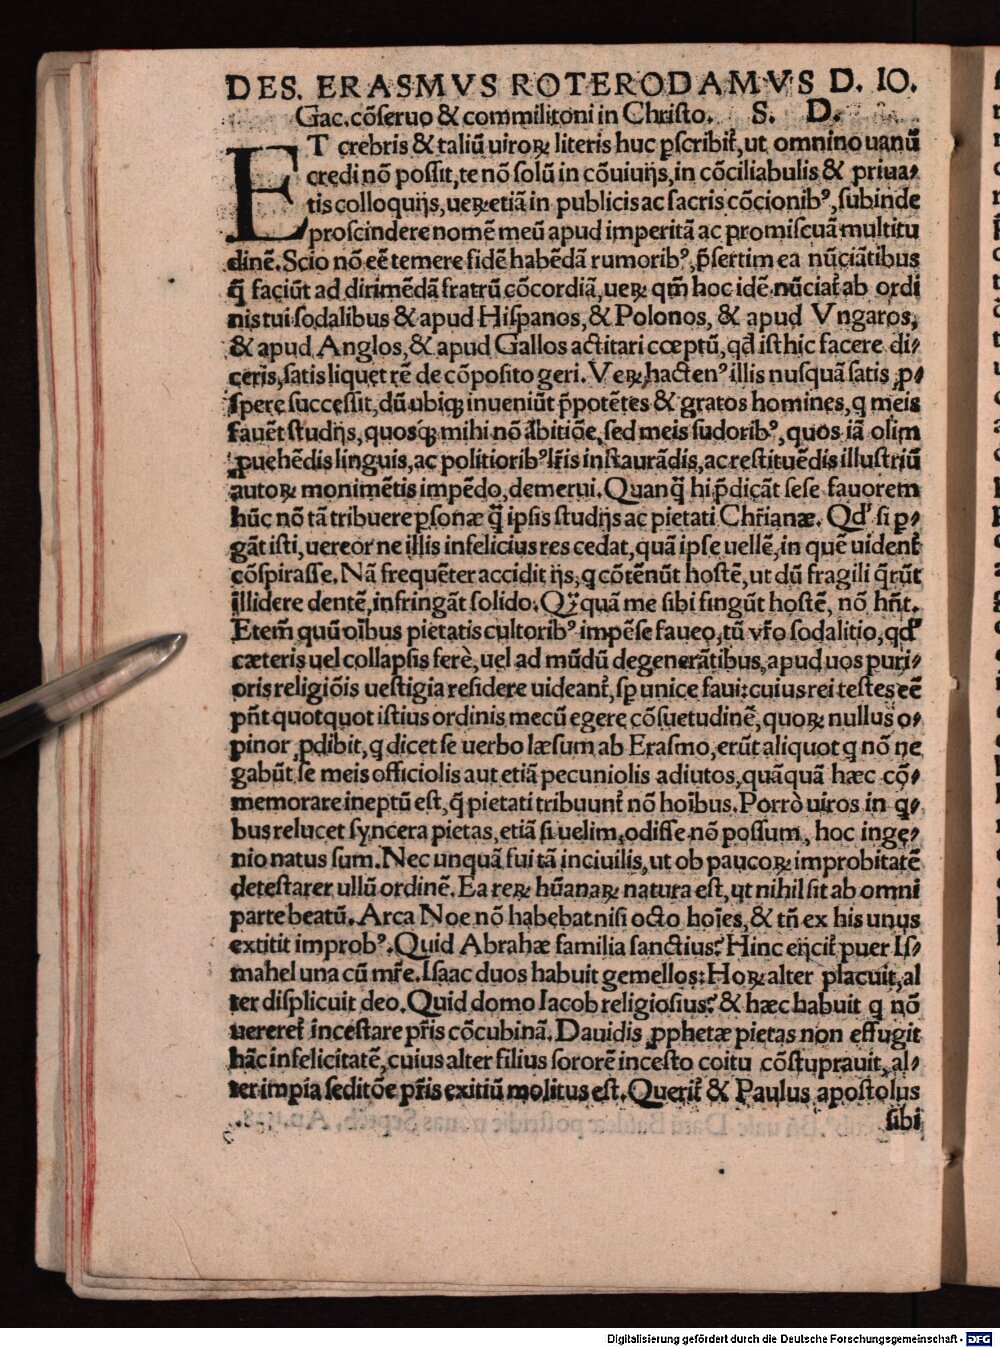 DES. ERASMVS ROTERODAMVS D. IO.
Gac. cõseruo & commilitoni in Christo. S. D.
ET crebris & taliũ uiroꝝ literis huc ꝑscribit᷑, ut omnino uanũ
credi nõ possit, te nõ solũ in cõuiuijs, in cõciliabulis & priua⸗
tis colloquijs, ueꝝ etiã in publicis ac sacris cõcionibꝰ, subinde
proscindere nomẽ meũ apud imperitã ac promiscuã multitu
dinẽ. Scio nõ eẽ temere fidẽ habẽdã rumoribꝰ, p̃sertim ea nũciãtibus
q̃ faciũt ad dirimẽdã fratrũ cõcordiã, ueꝝ qm̃ hoc idẽ nũciat᷑ ab ordi
nis tui sodalibus & apud Hispanos, & Polonos, & apud Vngaros,
& apud Anglos, & apud Gallos actitari cœptũ, qđ isthic facere di⸗
ceris, satis liquet rẽ de cõposito geri. Veꝝ hactenꝰ illis nusquã satis ꝓ⸗
spere successit, dũ ubiqꝫ inueniũt p̃potẽtes & gratos homines, q meis
fauẽt studijs, quosqꝫ mihi nõ ãbitiõe, sed meis sudoribꝰ, quos iã olim
ꝓuehẽdis linguis, ac politioribꝰ lr̃is instaurãdis, ac restituẽdis illustriũ
autoꝝ monimẽtis impẽdo, demerui. Quanq̃ hi p̃dicãt sese fauorem
hũc nõ tã tribuere ꝑsonæ q̃ ipsis studijs ac pietati Chr̃ianæ. Qđ si ꝑ⸗
gãt isti, uereor ne illis infelicius res cedat, quã ipse uellẽ, in quẽ uident᷑
cõspirasse. Nã frequẽter accidit ijs, q cõtẽnũt hostẽ, ut dũ fragili q̃rũt
illidere dentẽ, infringãt solido. Qꝗquã me sibi fingũt hostẽ, nõ hñt.
Etem̃ quũ oĩbus pietatis cultoribꝰ impẽse faueo, tũ vr̃o sodalitio, qđ
cæteris uel collapsis ferè, uel ad mũdũ degenerãtibus, apud uos puri⸗
oris religiõis uestigia residere uideant᷑, sp̱ unice faui: cuius rei testes eẽ
pñt quotquot istius ordinis mecũ egere cõsuetudinẽ, quoꝝ nullus o⸗
pinor ꝓdibit, q dicet se uerbo læsum ab Erasmo, erũt aliquot q nõ ne
gabũt se meis officiolis aut etiã pecuniolis adiutos, quãquã hæc cõ⸗
memorare ineptũ est, q̃ pietati tribuunt᷑ nõ hoĩbus. Porrò uiros in q⸗
bus relucet syncera pietas, etiã si uelim, odisse nõ possum, hoc inge⸗
nio natus sum. Nec unquã fui tã inciuilis, ut ob paucoꝝ improbitatẽ
detestarer ullũ ordinẽ. Ea reꝝ hũanaꝝ natura est, ut nihil sit ab omni
parte beatũ. Arca Noe nõ habebat nisi octo hoĩes, & tñ ex his unus
extitit improbꝰ. Quid Abrahæ familia sanctius? Hinc eijcit᷑ puer Is⸗
mahel una cũ mr̃e. Isaac duos habuit gemellos: Hoꝝ alter placuit, al
ter displicuit deo. Quid domo Iacob religiosius? & hæc habuit q nõ
uereret᷑ incestare pr̃is cõcubinã. Dauidis ꝓphetæ pietas non effugit
hãc infelicitatẽ, cuius alter filius sororẽ incesto coitu cõstuprauit, al⸗
ter impia seditõe pr̃is exitiũ molitus est. Querit᷑ & Paulus apostolus
sibi
Digitalisierung gefördert durch die Deutsche Forschungsgemeinschaft - DFG